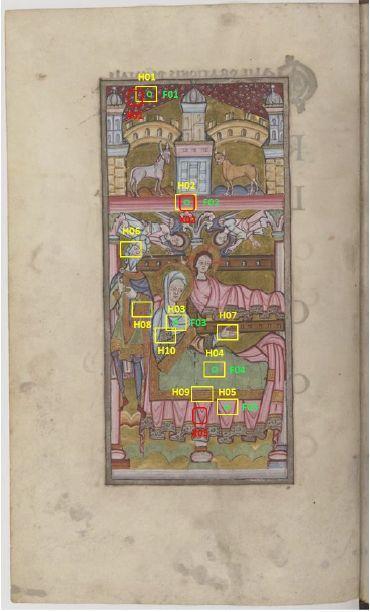 H01
F01
H02
F02
H06
H03
F03
H08
H07
H10
H04
F04
H09
H05
F05